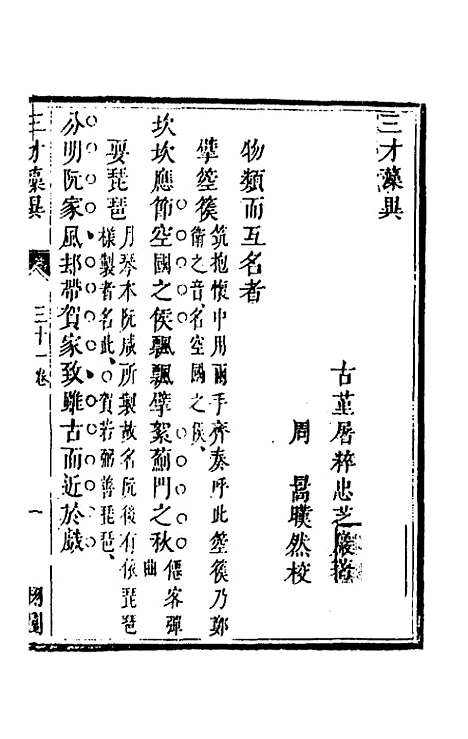 三才藻異
古堇屠粹忠芝巖
周 暠暵然校
物類而互名者
擘箜篌 筑抱懷中用兩手齊奏呼此箜篌乃鄭
衛之音名空國之侯
坎坎應節空國之侯飄飄擘絮薊門之秋 僊客彈
曲
耍琵琶 月琴本阮咸所製故名阮後有依琵琶
樣製者名此○賀若弼善琵琶
分明阮家風却帶賀家致雖古而近於戲
三才藻異
三十一卷
一